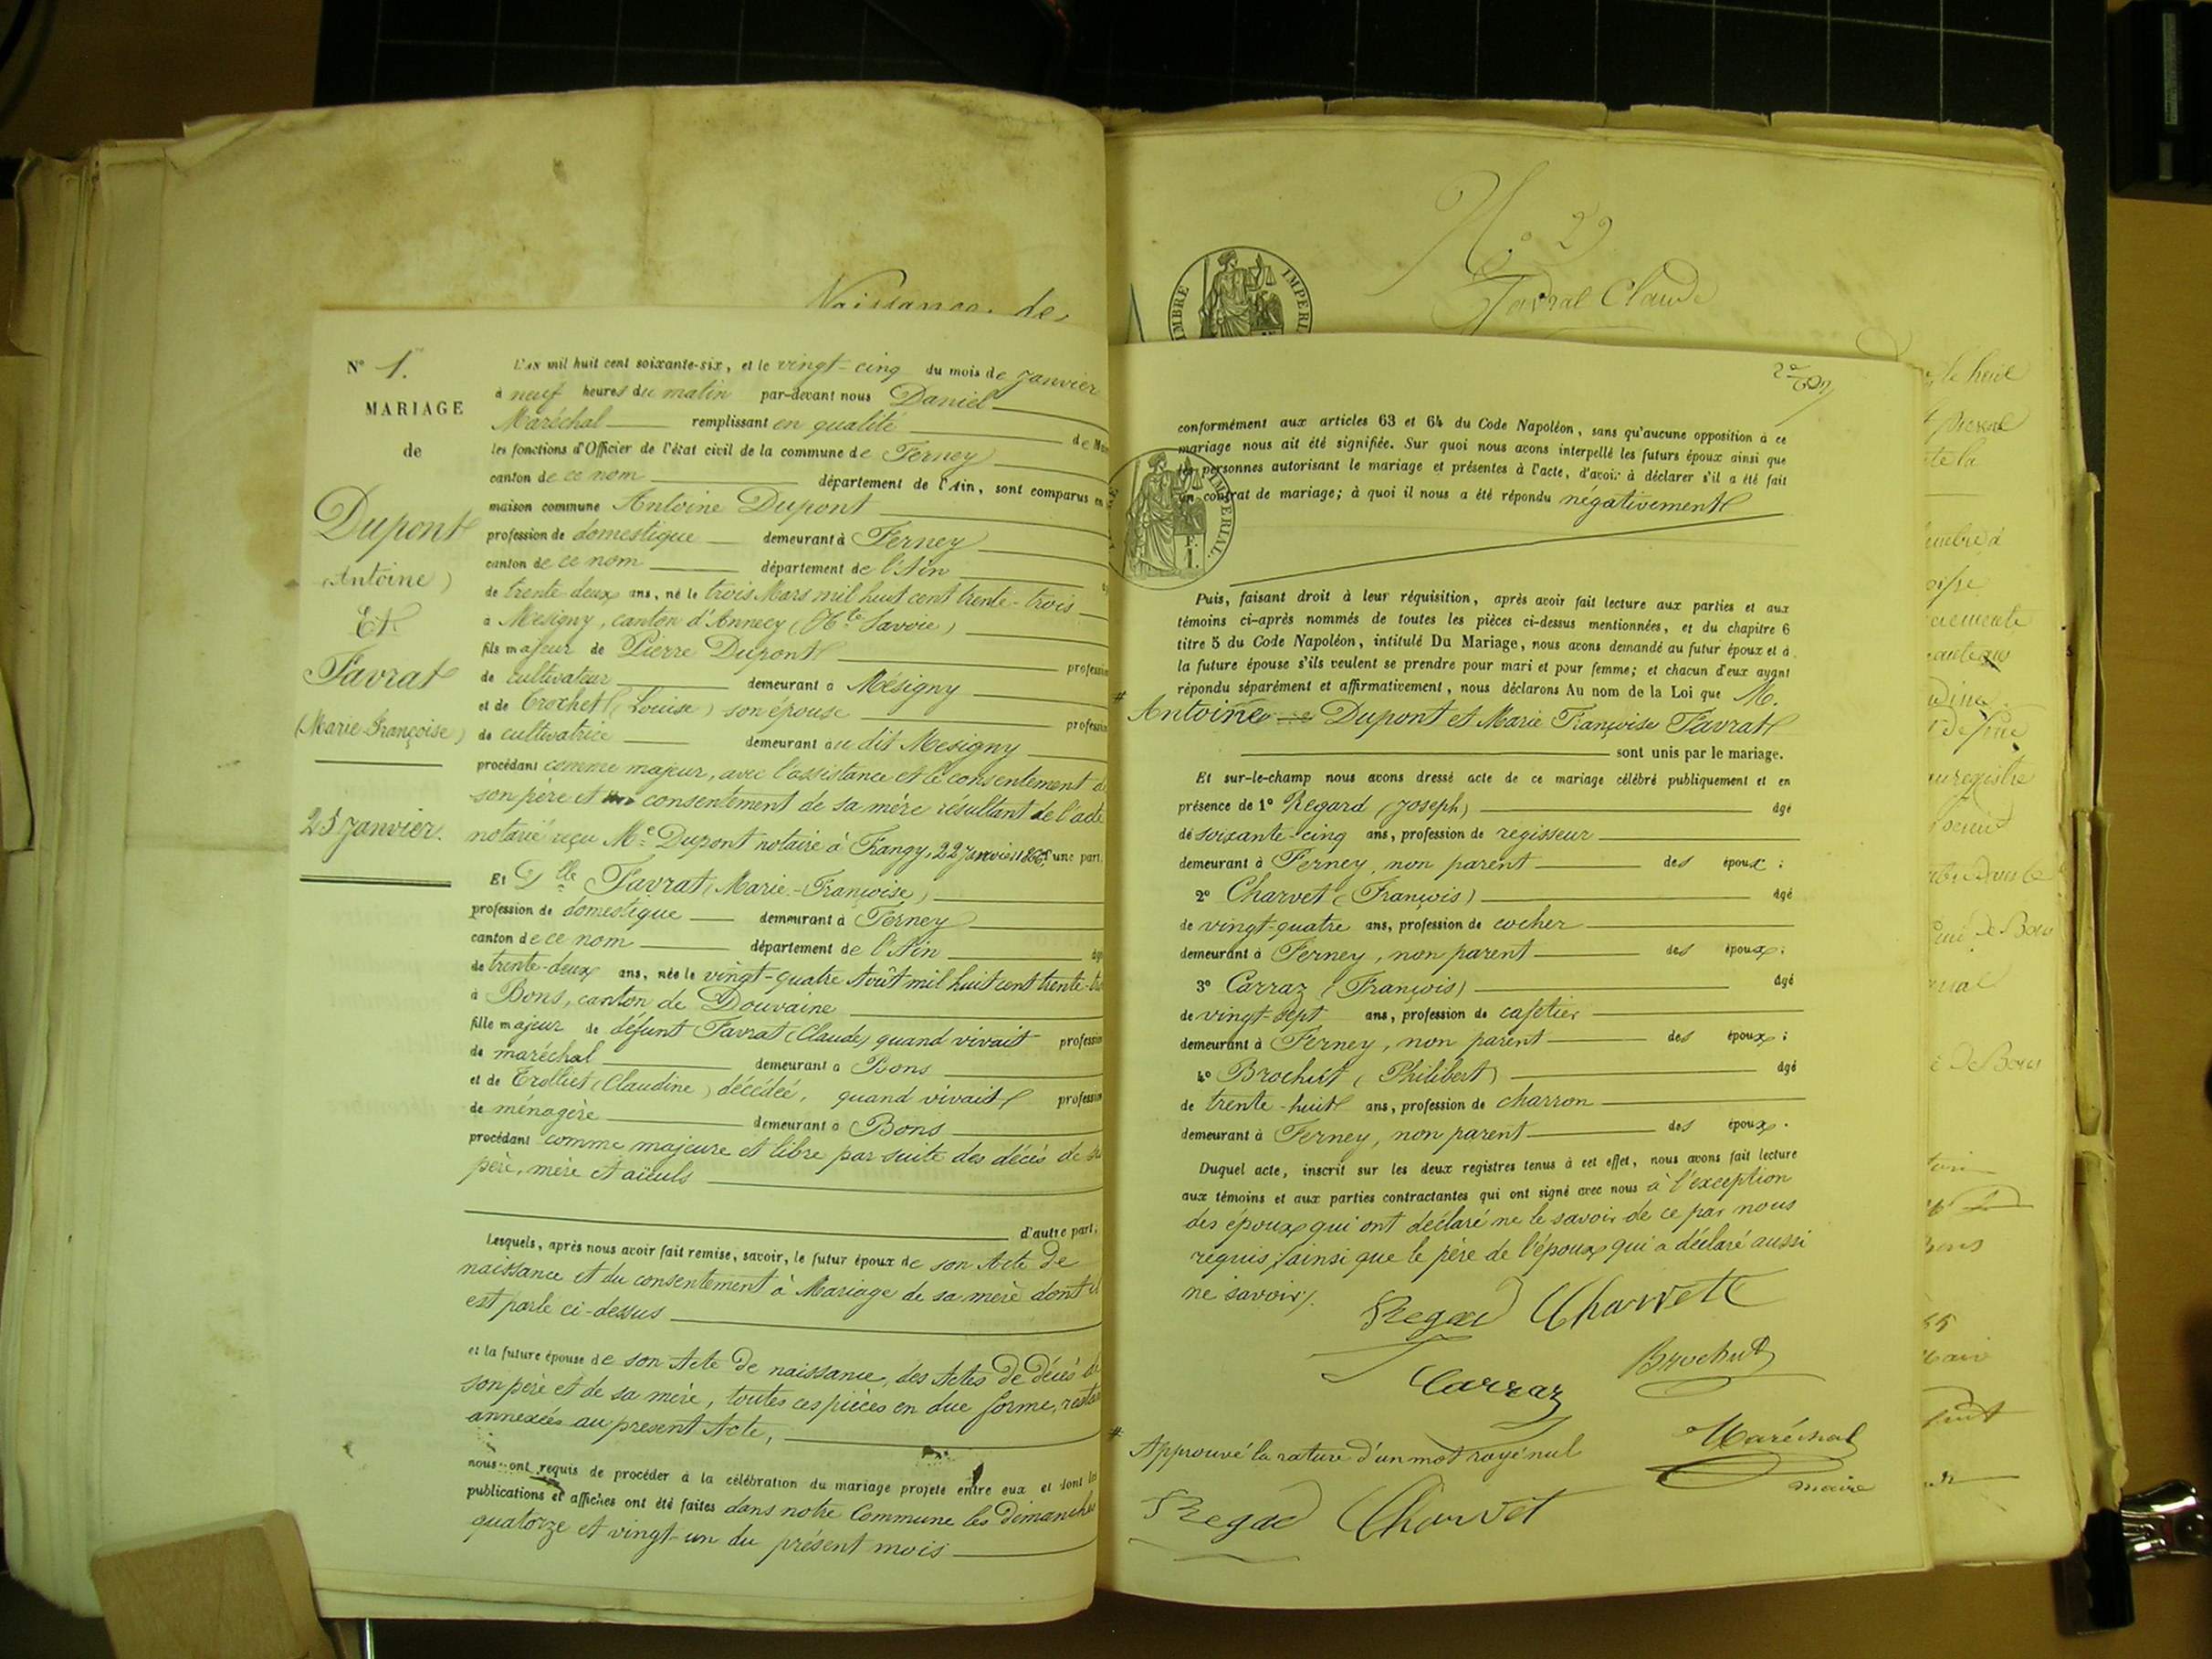 Naissance de
N° 1.
MARIAGE
de
Dupont
(Antoine)
Et
Favrat
(Marie Françoise)
25 Janvier.
L'AN mil huit cent soixante-six, et le vingt-cinq du mois de Janvier
à neuf heures du matin par-devant nous Daniel
Maréchal remplissant en qualité de
les fonctions d'Officier de l'état civil de la commune de Ferney
canton de ce nom département de l'Ain, sont comparus en
maison commune Antoine Dupont
profession de domestique demeurant à Ferney
canton de ce nom département de l'Ain
de trente-deux ans, né le trois Mars mil huit cent trente-trois
à Mesigny, canton d'Annecy (Hte Savoie)
fils majeur de Pierre Dupont profession
de cultivateur demeurant à Mésigny
et de Crochet (Louise) son épouse profession
de cultivatrice demeurant au dit Mesigny
procédant comme majeur, avec l'assistance et le consentement de
son père et consentement de sa mère résultant de l'acte
notarié reçu Me Dupont notaire à Frangy, 22 janvier 1866 d'une part.
Et Dlle Favrat (Marie-Françoise)
profession de domestique demeurant à Ferney
canton de ce nom département de l'Ain
de trente-deux ans, née le vingt-quatre Août mil huit cent trente-
à Bons, canton de Douvaine
fille majeur de défunt Favrat (Claude) quand vivait profession
de maréchal demeurant à Bons
et de Trolliet (Claudine) décédée, quand vivait profession
de ménagère demeurant à Bons
procédant comme majeure et libre par suite des décès de
père, mère et aïeuls
d'autre part;
Lesquels, après nous avoir fait remise, savoir, le futur époux de son Acte de
naissance et du consentement à Mariage de sa mère dont il
est parlé ci-dessus
et la future épouse de son Acte de naissance, des Actes de décès de
son père et de sa mère, toutes ces pièces en due forme,
annexées au présent Acte,
nous ont requis de procéder à la célébration du mariage projeté entre eux et dont les
publications et affiches ont été faites dans notre Commune les Dimanches
quatorze et vingt-un du présent mois
N° 29
Favrat Claude
TIMBRE IMPERIAL
conformément aux articles 63 et 64 du Code Napoléon, sans qu'aucune opposition à ce
mariage nous ait été signifiée. Sur quoi nous avons interpellé les futurs époux ainsi que
les personnes autorisant le mariage et présentes à l'acte, d'avoir à déclarer s'il a été fait
un contrat de mariage; à quoi il nous a été répondu négativement
IMPERIAL.
Puis, faisant droit à leur réquisition, après avoir fait lecture aux parties et aux
témoins ci-après nommés de toutes les pièces ci-dessus mentionnées, et du chapitre 6
titre 5 du Code Napoléon, intitulé Du Mariage, nous avons demandé au futur époux et à
la future épouse s'ils veulent se prendre pour mari et pour femme; et chacun d'eux ayant
répondu séparément et affirmativement, nous déclarons Au nom de la Loi que M.
# Antoine Dupont et Marie Françoise Favrat
sont unis par le mariage.
Et sur-le-champ nous avons dressé acte de ce mariage célébré publiquement et en
présence de 1° Regard (Joseph) âgé
de soixante-cinq ans, profession de regisseur
demeurant à Ferney, non parent des époux;
2° Charvet (François) âgé
de vingt-quatre ans, profession de cocher
demeurant à Ferney, non parent des époux;
3° Carraz (François) âgé
de vingt-sept ans, profession de cafetier
demeurant à Ferney, non parent des époux;
4° Brochut (Philibert) âgé
de trente-huit ans, profession de charron
demeurant à Ferney, non parent des époux.
Duquel acte, inscrit sur les deux registres tenus à cet effet, nous avons fait lecture
aux témoins et aux parties contractantes qui ont signé avec nous à l'exception
des époux qui ont déclaré ne le savoir de ce par nous
requis, ainsi que le père de l'époux qui a déclaré aussi
ne savoir.
Regad Charvet
Carraz Brochut
# Approuvé la rature d'un mot rayé nul
Maréchal
maire
Regad Charvet